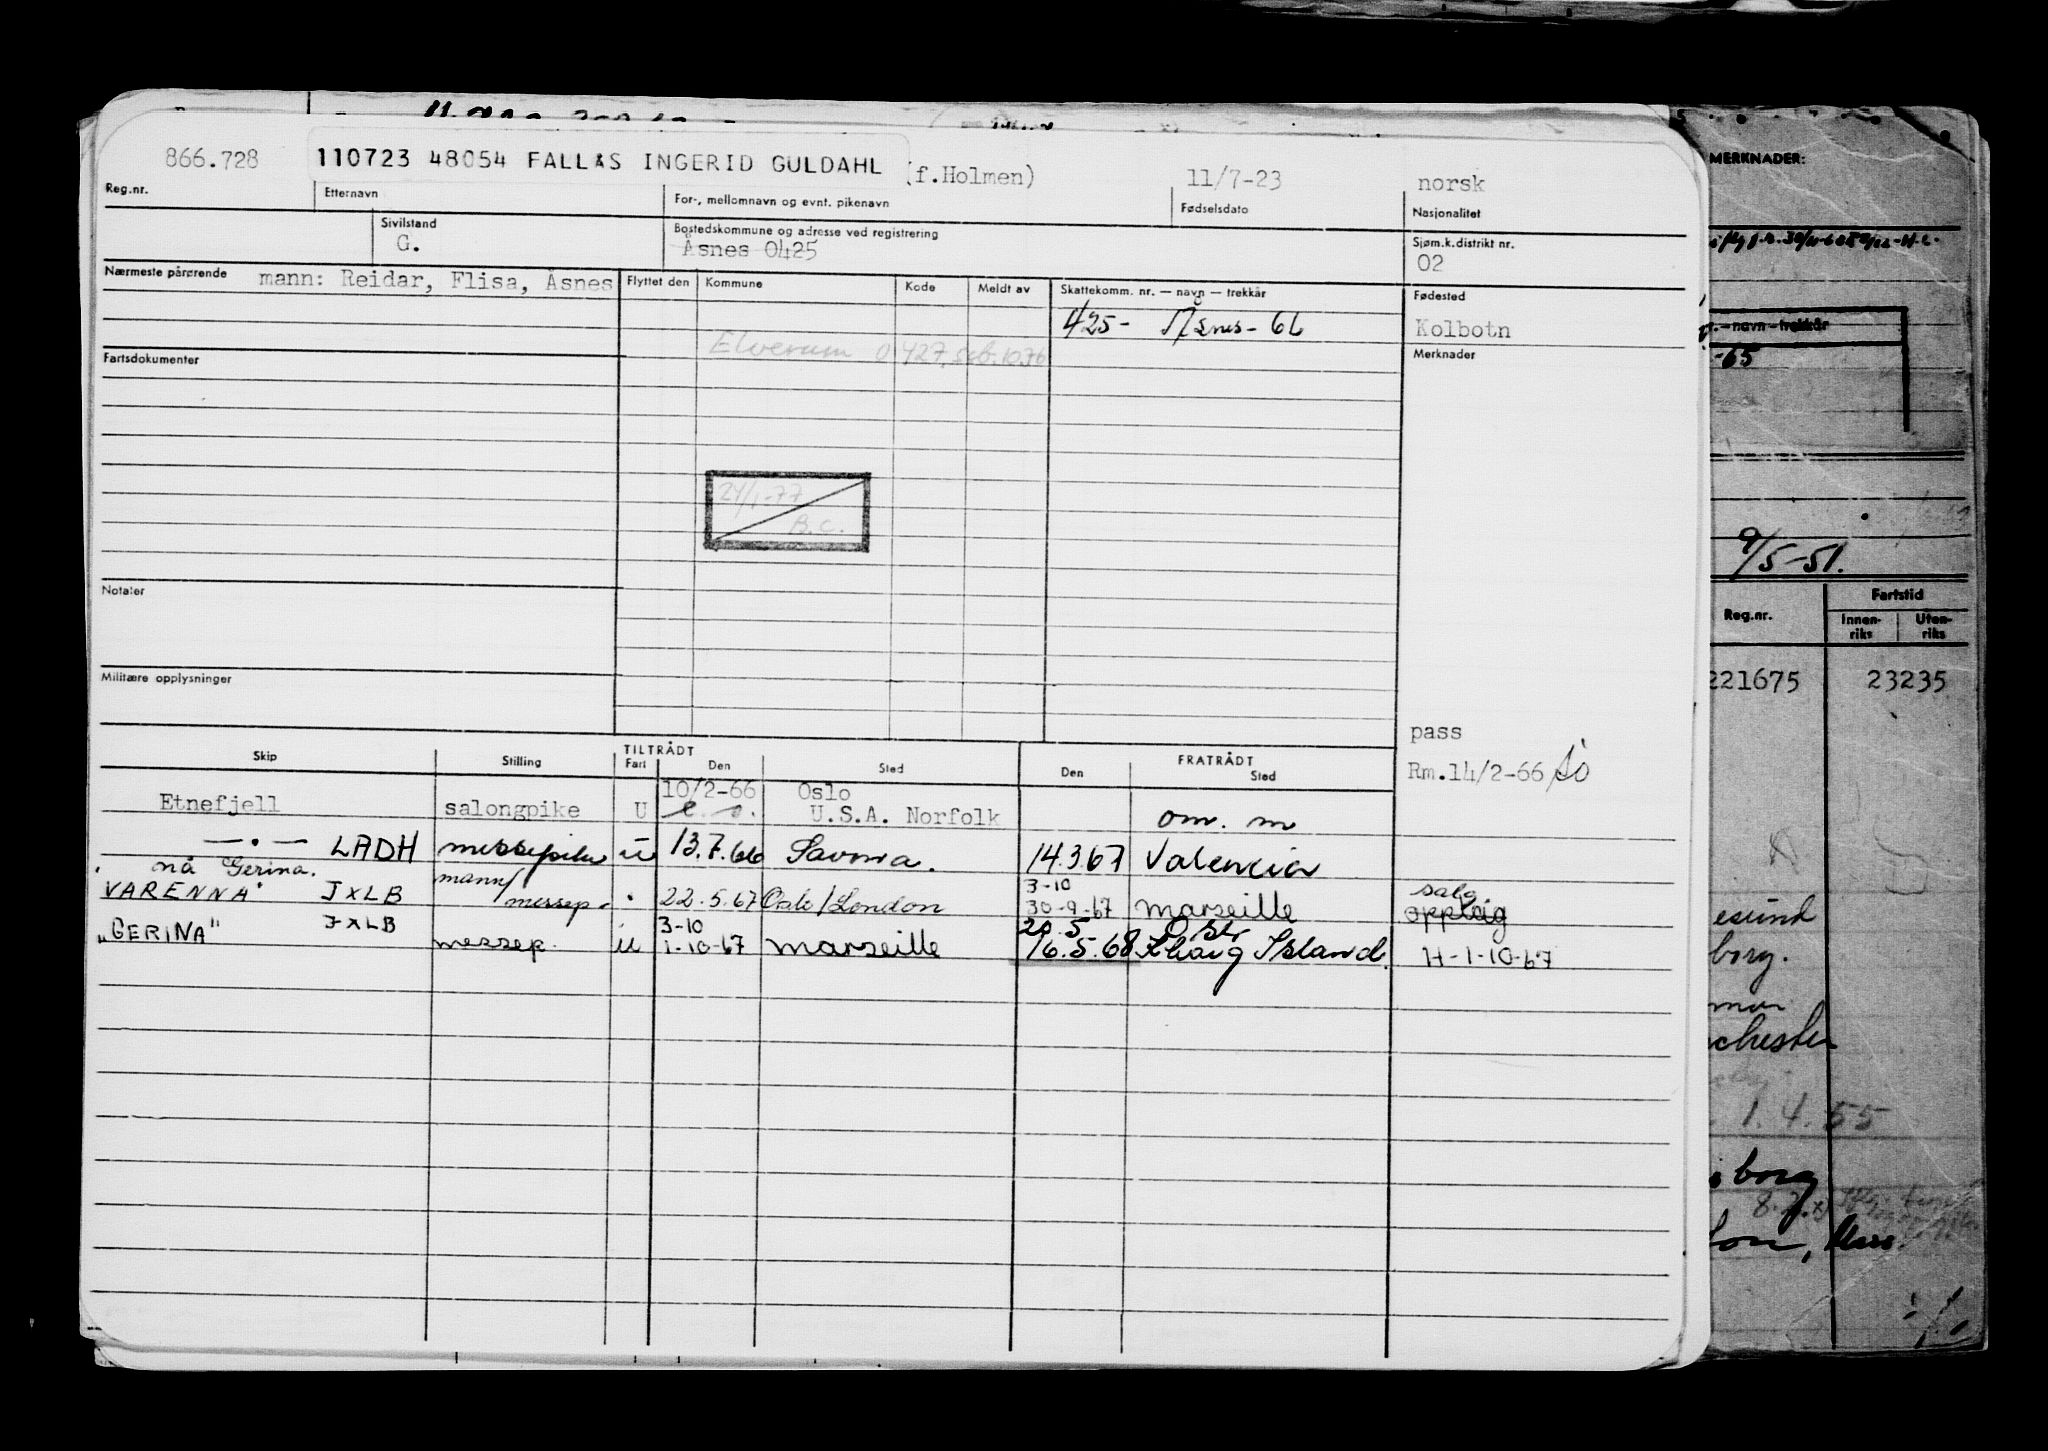 866.728 110723 48054 FALLÅS INGERID GULDAHL (f.Holmen) 11/7-23 norsk
Reg.nr. Etternavn For-, mellomnavn og evnt. pikenavn Fødselsdato Nasjonalitet
Sivilstand Bostedskommune og adresse ved registrering Sjøm.k.distrikt nr.
G. Åsnes 0425 02
Nærmeste pårørende mann: Reidar, Flisa, Åsnes Flyttet den Kommune Kode Meldt av Skattekomm. nr. — navn — trekkår Fødested
425- Åsnes- 66 Kolbotn
Elverum 0427, skb. 10.76
Fartsdokumenter Merknader
24/1-77
B.C.
Notater
Militære opplysninger
pass
Rm.14/2-66
Skip Stilling TILTRÅDT Fart Den Sted FRATRÅDT Den Sted
Etnefjell salongpike U 10/2-66 Oslo
U.S.A. Norfolk om. m
— . — LADH messepike u 13.7.66 Savona. 14.3.67 Valencia
nå Gerina.
"VARENNA" JXLB mann/messep. 22.5.67 Oslo/London 3-10 30-9-67 Marseille salg opplag
"GERINA" JXLB messep. u 3-10 1-10-67 Marseille 20.5 16.5.68 Island. H-1-10-67
MERKNADER:
-navn-trekkår
-65
9/5-51.
Reg.nr. Fartstid
Innen-riks Uten-riks
221675 23235
esund
borg.
chester
1.4.55
borg